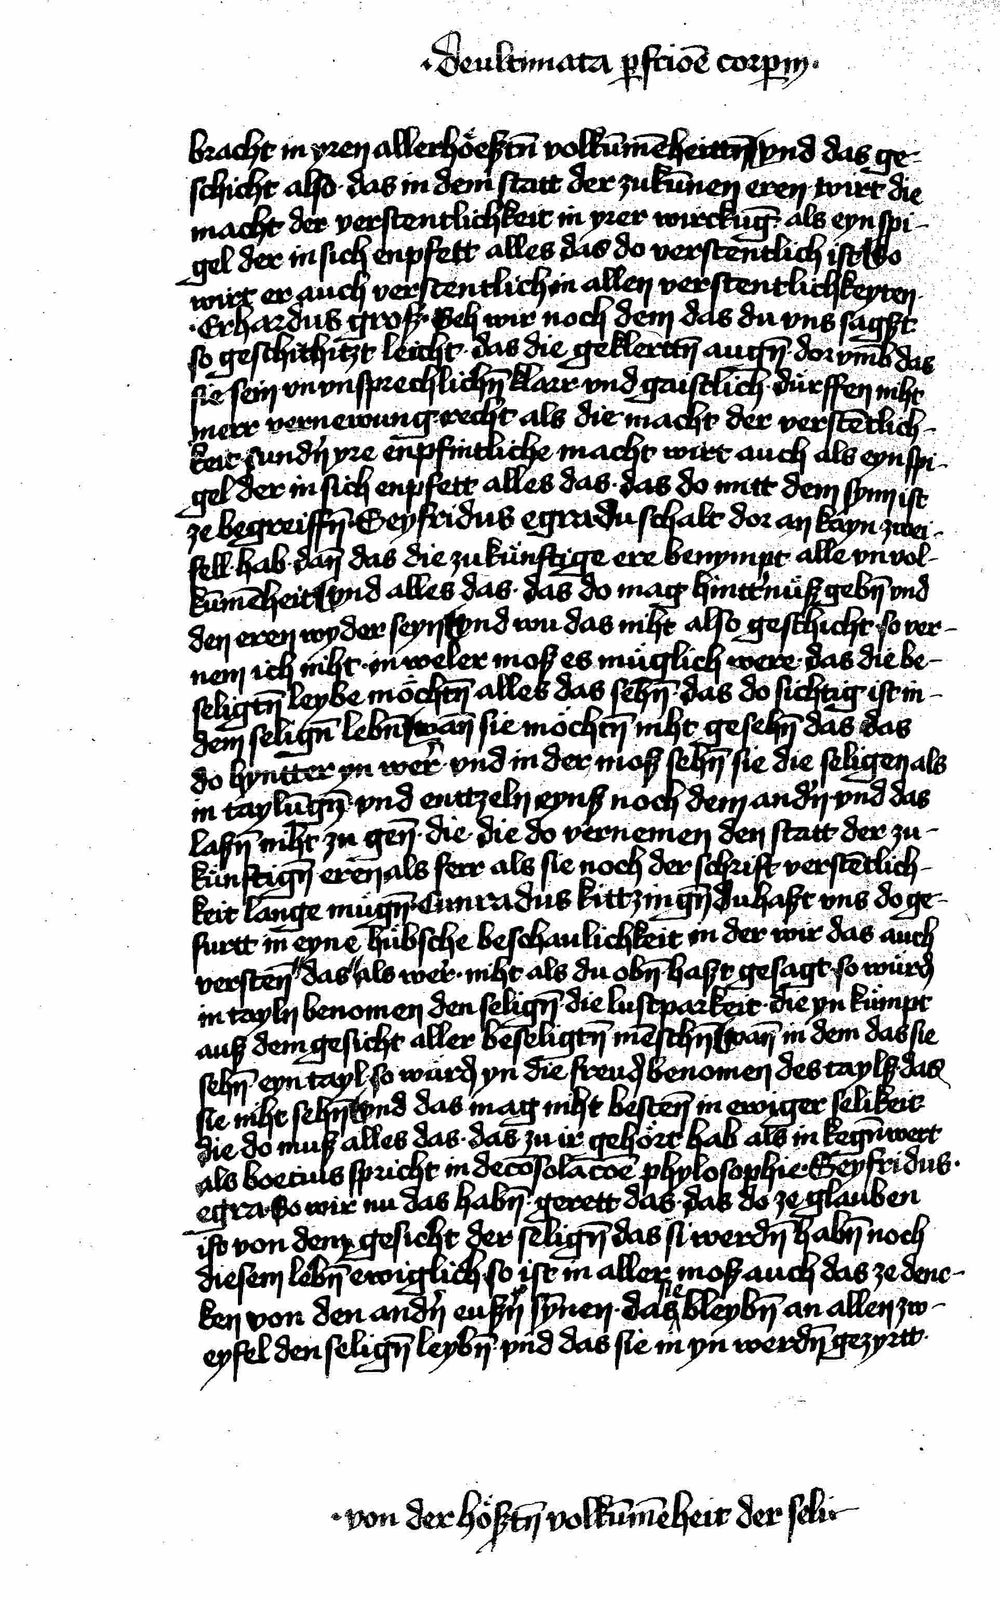 ·De ultimata ꝑfctiōe corpoꝝ·
bracht in yren allerhöeßtn̄ volkūmēheittn̄ vnd das ge-
schicht also· das in dem statt der zukūnen eren wirt die
macht der verstentlichkeit in yrer wirckūg· als eyn spi-
gel der in sich enpfett alles das do verstentlich ist So
wirt er auch verstentlich in allen verstentlichkeyten·
·Erhardus groß· Seh wir noch dem das du vns sagst
so geschichtzt leicht· das die geklerttn̄ augn̄· dor vmb das
sie sein vnvnsprechlichn̄ klarr vnd gaistlich· dürffen niht
merr vernewung· recht als die macht der verstētlich-
keit· Sundn̄ yre enpfintliche macht wirt auch als eyn spi-
gel der in sich enpfett alles das· das do mitt dem synn ist
ze begreiffn̄· Seyfridus egra du schalt dor an kayn zwei-
fell· hab· dan̄ das die zukünftige ere benympt alle vnvol-
kūmēheit vnd alles das· das do mag hintternüß gebn̄ vnd
den eren wyder seyn vnd wu das niht also geschicht· so ver-
nem ich niht· in weler moß es müglich were· das die be-
seligtn̄ leybe möchtn̄ alles das sehn̄· das do sichtig ist in-
dem selign̄ lebn̄ wan̄ sie möchtn̄ niht gesehn̄ das das
do hyntter yn wer· vnd in der moß sehn̄ sie die seligen als
in taylūgn̄· vnd enttzeln eynß noch dem andn̄· vnd das
laßn̄ niht zu gen̄· die· die do vernemen den statt der zu-
künftign̄ eren als ferr als sie noch der schrift verstētlich-
keit lange mügn̄· Cunradus kittzingn̄ du hast vns do ge-
furtt in eyne hübsche beschaulichkeit in der wir das auch
versten̄ das als wer· niht als du obn̄ hast gesagt· so würd
in tayln benomen den selign̄· die lustparkeit· die yn kümpt
auß dem gesicht aller beseligtn̄ mēschn̄ wan̄ in dem das sie
sehn̄ eyn tayl· so würd yn die freud benomen des taylß· das
sie niht sehn̄ vnd das mag niht besten̄ in ewiger selikeit
die do muß alles das· das zu ir gehört hab als in kegn̄wert
als boetius spricht in de cōsolacōe phylosophie· Seyfridus·
egra· So wir nu das habn̄· gerett das· das do ze glauben
ist von dem gesicht der selign̄ das si werdn̄ habn̄ noch
diesem lebn̄ ewiglich· so ist in aller moß auch das ze denc-
ken von den andn̄ eußn̄ sȳnen· das sie bleybn̄ an allen zw-
eyfel den selign̄ leybn̄· vnd das sie in yn werdn̄ gezyrtt·
·von der hößtn̄ volkūmēheit der seli-